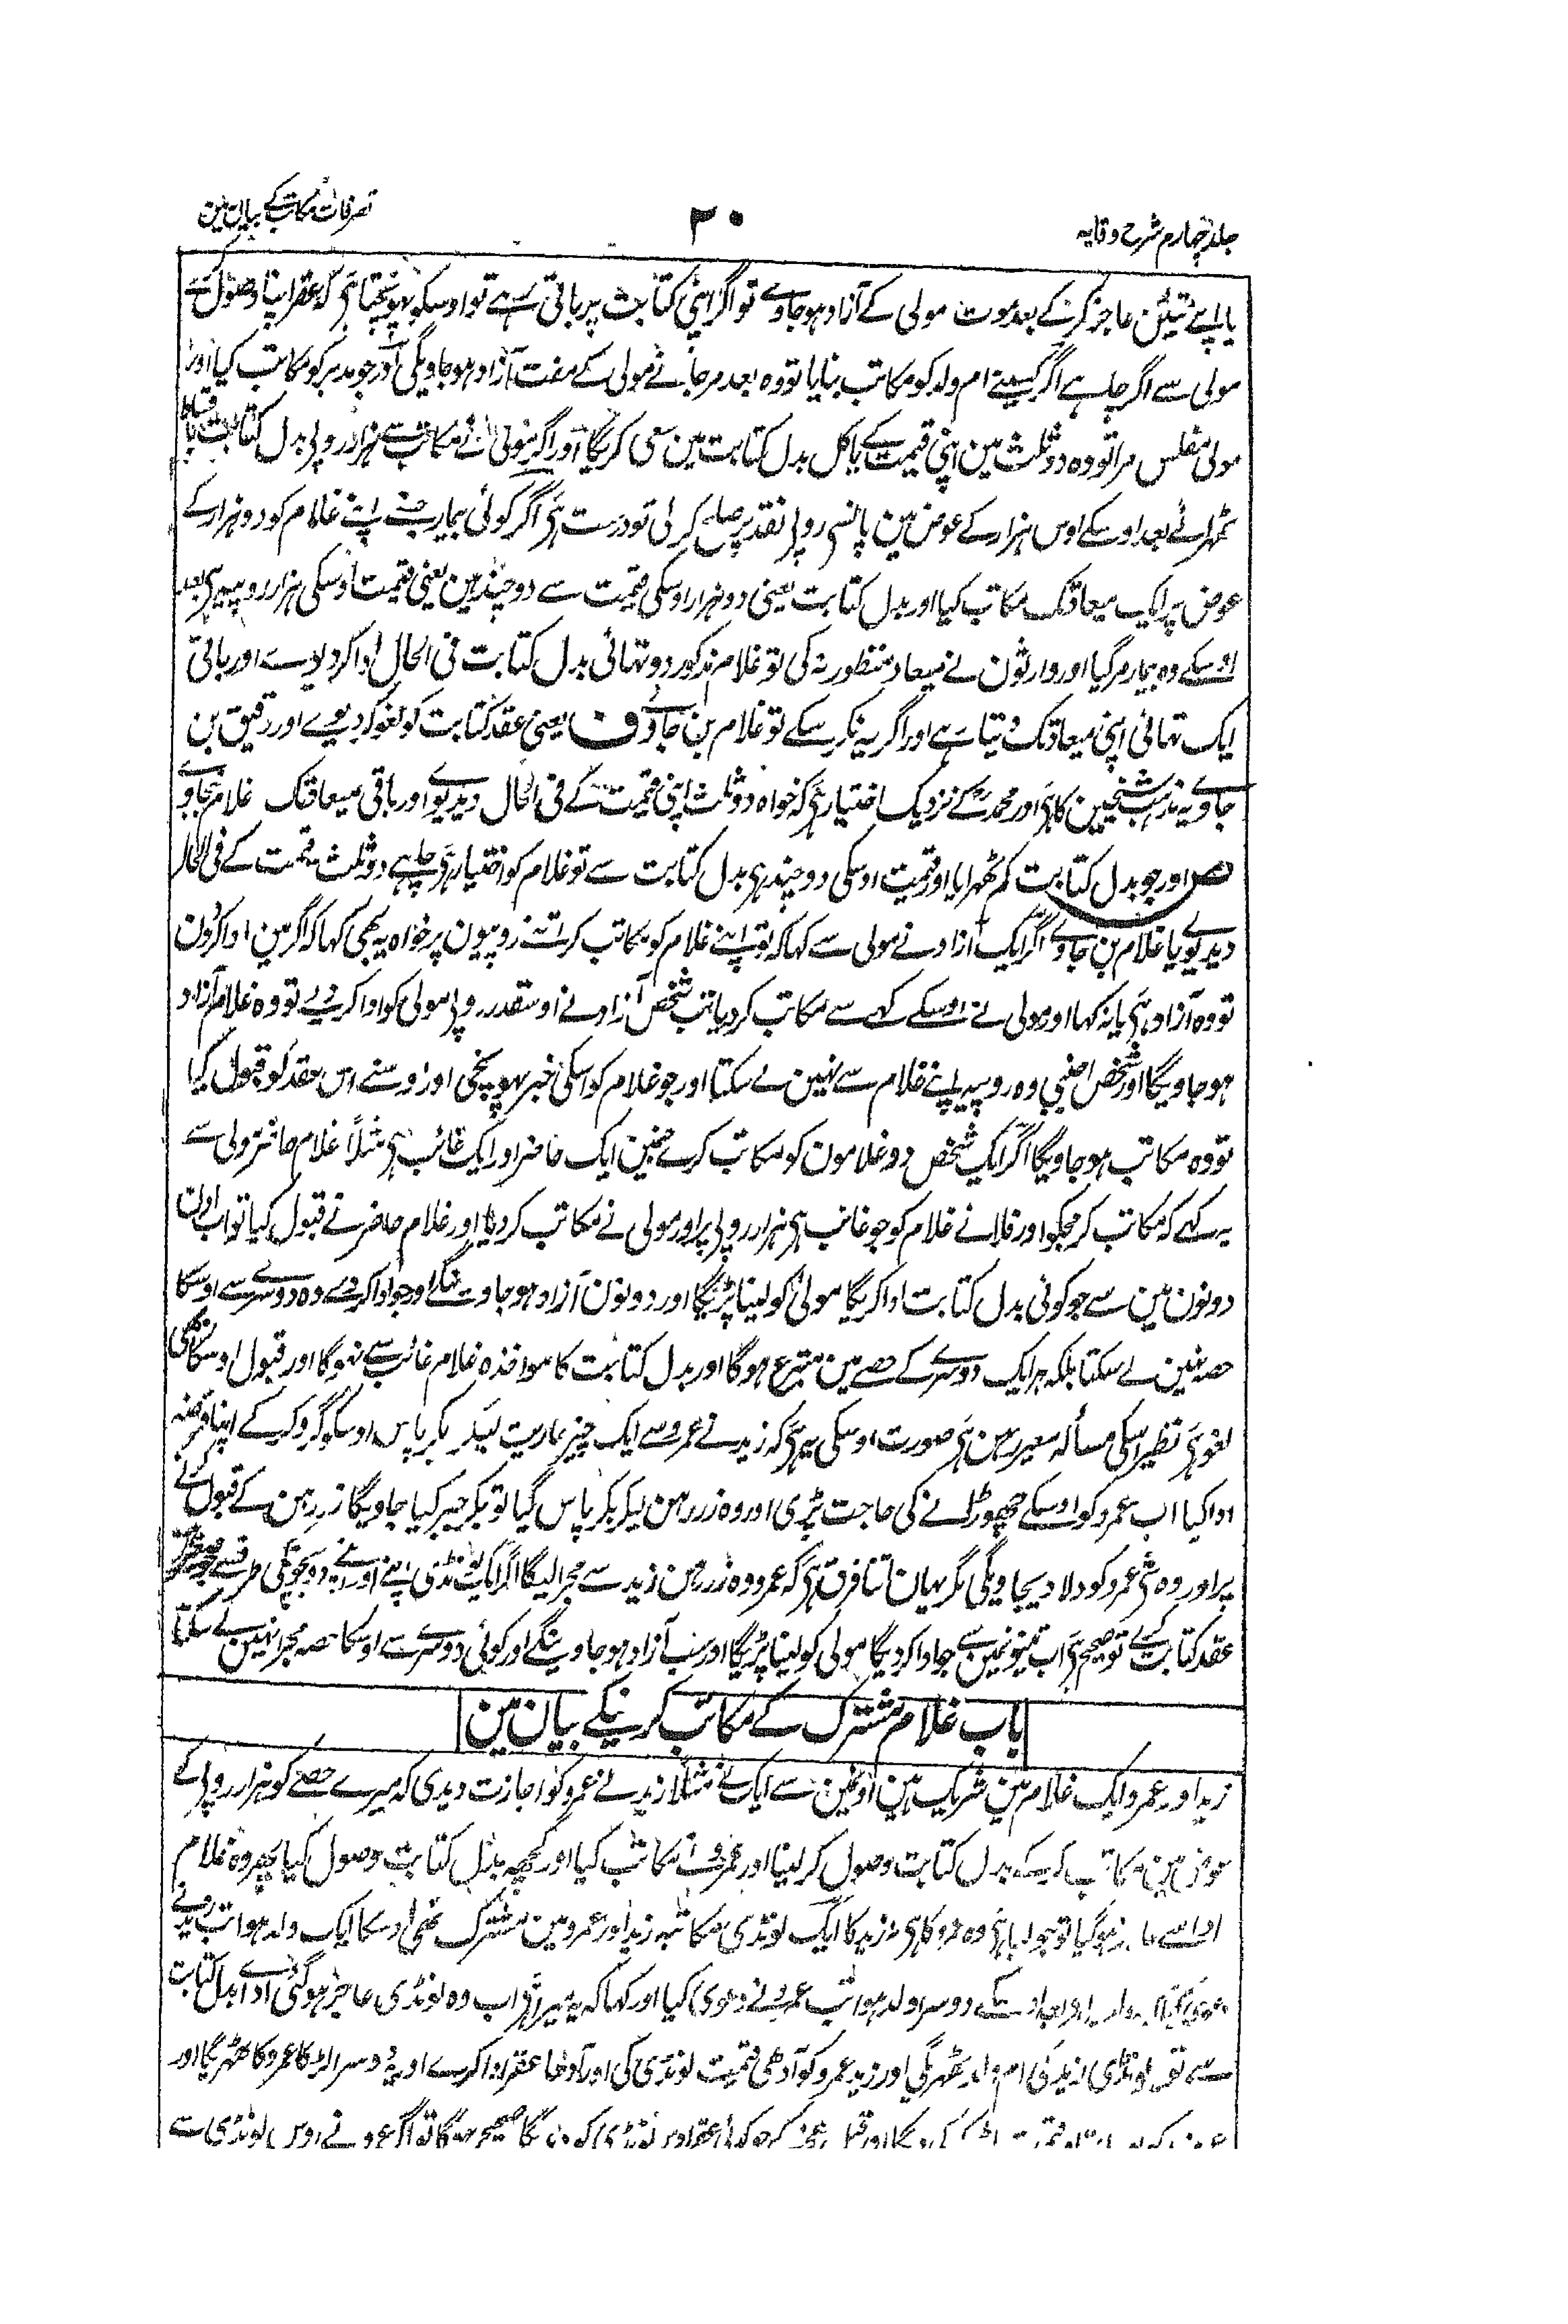 جلد چہارم شرح وقایہ
۳۰
تصرفات مکاتب کے بیان مین
یا اپنے تئین عاجز کرنے کے بعد موت مولی کے آزاد ہو جاوے تو اگر اپنی کتابت پر باقی رہے تو اوسکو پہونچتا ہی کہ عقر اپنا وصول کرے
مولی سے اگر چاہے اگر کسینے ام ولد کو مکاتب بنایا تو وہ بعد مر جانے مولی کے مفت آزاد ہو جاویگی اور جو مدبر کو مکاتب کیا اور
مولی مفلس مرا تو وہ دو ثلث مین اپنی قیمت کے یا کل بدل کتابت مین سعی کریگا اور اگر مولی نے مکاتب سے ہزار روپی بدل کتابت باقساط
ٹھہرائے بعد اوسکے اوس ہزار کے عوض مین پانسی روپی نقد پر صلح کر لی تو درست ہی اگر کوئی بیمار جسنے اپنے غلام کو دو ہزار کے
عوض پر ایک میعاد تک مکاتب کیا اور بدل کتابت یعنی دو ہزار اوسکی قیمت سے دوچند ہین یعنی قیمت اوسکی ہزار روپیہ ہی بعد
اوسکے وہ بیمار مر گیا اور وارثون نے میعاد منظور نہ کی تو غلام مذکور دو تہائی بدل کتابت فی الحال ادا کر دیوے اور باقی
ایک تہائی اپنی میعاد تک دیتا رہے اور اگر یہ نکر سکے تو غلام بن جاوے ف یعنی عقد کتابت کو لغو کر دیوے اور رقیق بن
جاوے یہ مذہب شیخین کا ہی اور محمد کے نزدیک اختیار ہی کہ خواہ دو ثلث اپنی قیمت کے فی الحال دیدیوے اور باقی میعاد تک غلام بنجاوے
ص اور جو بدل کتابت کم ٹھہرایا اور قیمت اوسکی دوچند ہی بدل کتابت سے تو غلام کو اختیار ہی چاہے دو ثلث قیمت کے فی الحال
دیدیوے یا غلام بن جاوے اگر ایک آزاد نے مولی سے کہا کہ تو اپنے غلام کو مکاتب کر اتنے روپیون پر خواہ یہ بھی کہا کہ اگر مین ادا کرون
تو وہ آزاد ہی یا نہ کہا اور مولی نے اوسکے کہے سے مکاتب کر دیا تب شخص آزاد نے اوسقدر روپی مولی کو ادا کر دیے تو وہ غلام آزاد
ہو جاویگا اور شخص اجنبی وہ روپیہ اپنے غلام سے نہین لے سکتا اور جو غلام کو اسکی خبر پہونچی اور اوسنے اس عقد کو قبول کیا
تو وہ مکاتب ہو جاویگا اگر ایک شخص دو غلامون کو مکاتب کرے جنمین ایک حاضر اور ایک غائب ہی مثلاً غلام حاضر مولی سے
یہ کہے کہ مکاتب کر مجکو اور فلانے غلام کو جو غائب ہی ہزار روپی پر اور مولی نے مکاتب کر دیا اور غلام حاضر نے قبول کیا تو اب اون
دونون مین سے جو کوئی بدل کتابت ادا کریگا مولی کو لینا پڑیگا اور دونون آزاد ہو جاوینگے اور جو ادا کرے وہ دوسرے سے اوسکا
حصہ نہین لے سکتا بلکہ ہر ایک دوسرے کے حصے مین متبرع ہوگا اور بدل کتابت کا مواخذہ غلام غائب سے نہوگا اور قبول اوسکا بھی
لغو ہی نظیر اسکی مسألہ معیر رہن ہی صورت اوسکی یہ ہی کہ زید نے عمرو سے ایک چیز عاریت لیکر بکر پاس اوسکو گرو کرکے اپنا قرضہ
ادا کیا اب عمرو کو اوسکے چھوڑانے کی حاجت پڑی اور وہ زر رہن لیکر بکر پاس گیا تو بکر جبر کیا جاویگا زر رہن کے قبول کرنے
پر اور وہ شی عمرو کو دلا دیجاویگی مگر یہان اتنا فرق ہی کہ عمرو وہ زر رہن زید سے مجرا لیگا اگر ایک لونڈی اپنے اور اپنے دو بچونکی طرف سے
عقد کتابت کرے تو صحیح ہی اب تینونمین سے جو ادا کردیگا مولی کو لینا پڑیگا اور سب آزاد ہو جاوینگے اور کوئی دوسرے سے اوسکا حصہ مجرا نہین لے سکتا
باب غلام مشترک کے مکاتب کرنیکے بیان مین
زید اور عمرو ایک غلام مین شریک ہین اونمین سے ایک نے مثلاً زید نے عمرو کو اجازت دیدی کہ میرے حصے کو ہزار روپی کے
عوض مین مکاتب کرکے بدل کتابت وصول کر لینا اور عمرو نے مکاتب کیا اور کچھ بدل کتابت وصول کیا پھر وہ غلام
ادا سے عاجز ہو گیا تو جو لیا ہی وہ عمرو کا ہی نہ زید کا ایک لونڈی مکاتبہ زید اور عمرو مین مشترک تھی اوسکا ایک ولد ہوا تب زید نے
دوسرا ولد ہوا تب عمرو نے دعوی کیا اور کہا کہ یہ میرا ہی اب وہ لونڈی عاجز ہو گئی ادائے بدل کتابت
سے تو لونڈی زید کی ام ولد ٹھہریگی اور زید عمرو کو آدھی قیمت لونڈی کی اور آدھا عقر ادا کرے اور یہ دوسرا لڑکا عمرو کا ٹھہریگا اور